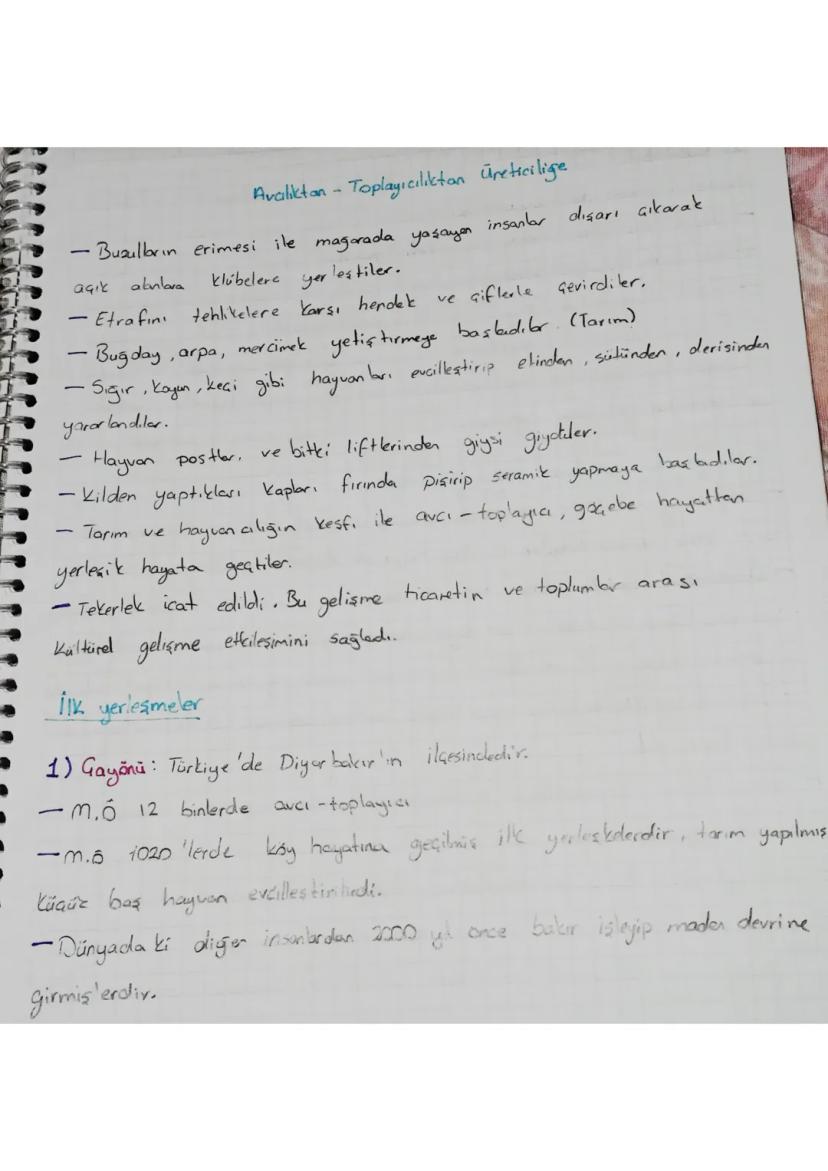 Avcılıktan - Toplayıcılıktan Üreticiliğe
— Buzulların erimesi ile mağarada yaşayan insanlar dışarı çıkarak
açık alanlara klübelere yerleştiler.
— Etrafını tehlikelere karşı hendek ve çiflerle çevirdiler.
— Buğday, arpa, mercimek yetiştirmeye başladılar. (Tarım)
— Sığır, koyun, keçi gibi hayvanları evcilleştirip etinden, sütünden, derisinden
yararlandılar.
— Hayvan postları ve bitki liftlerinden giysi giydiler.
— Kilden yaptıkları kapları fırında pişirip seramik yapmaya başladılar.
— Tarım ve hayvancılığın keşfi ile avcı - toplayıcı, göçebe hayattan
yerleşik hayata geçtiler.
— Tekerlek icat edildi. Bu gelişme ticaretin ve toplumlar arası
kültürel gelişme etkileşimini sağladı.
İlk yerleşmeler
1) Çayönü: Türkiye'de Diyarbakır'ın ilçesindedir.
— M.Ö 12 binlerde avcı - toplayıcı
— M.Ö 1020'lerde köy hayatına geçilmiş ilk yerleşkelerdir, tarım yapılmış
küçük baş hayvan evcilleştirildi.
— Dünyada ki diğer insanlardan 2000 yıl önce bakır işleyip maden devrine
girmiş'erdir.